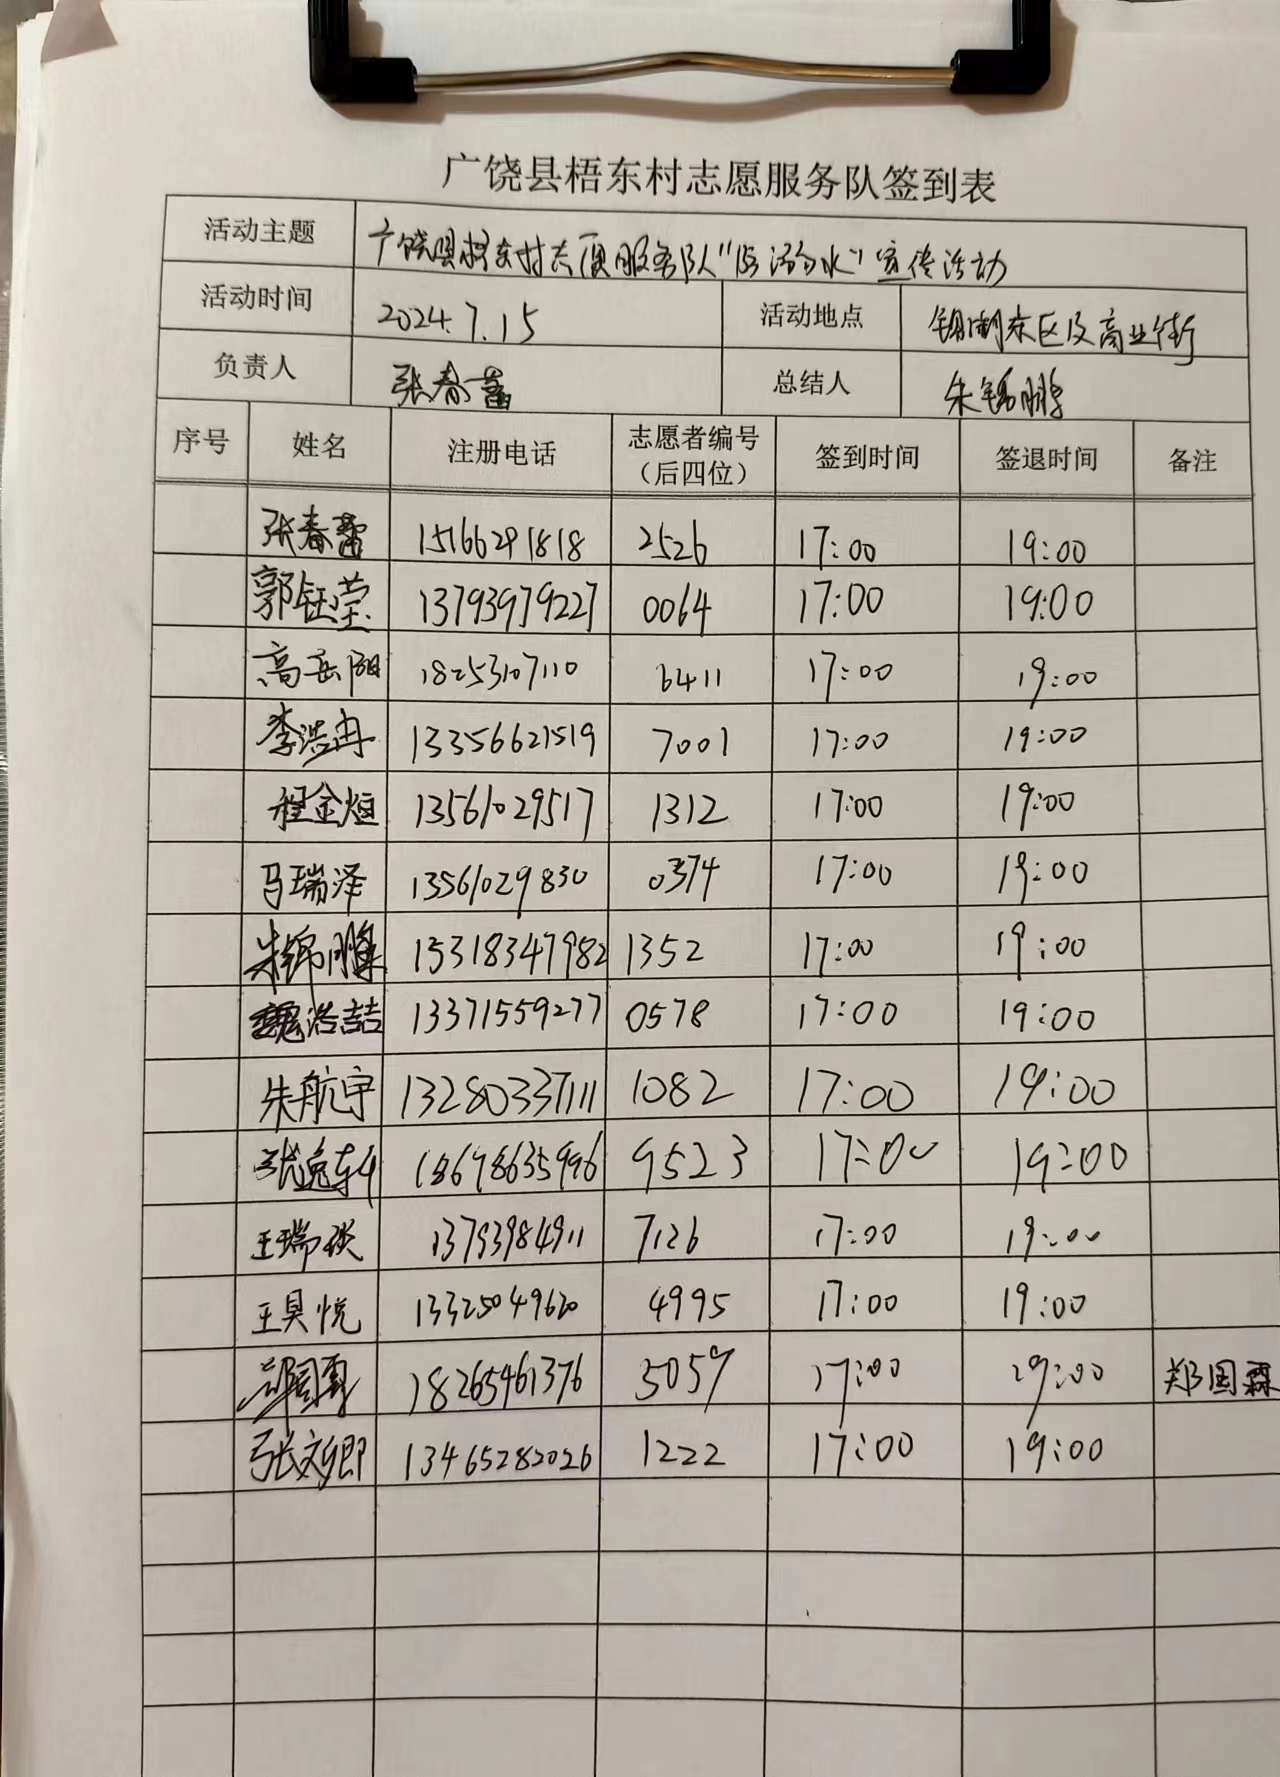 广饶县梧东村志愿服务队签到表
活动主题 广饶县梧东村志愿服务队“防溺水”宣传活动
活动时间 2024.7.15 活动地点 锦湖东区及商业街
负责人 张春蕾 总结人 朱锦鹏
序号 姓名 注册电话 志愿者编号（后四位） 签到时间 签退时间 备注
张春蕾 15166291818 2526 17:00 19:00
郭钰莹 13793979227 0064 17:00 19:00
高岳阳 18253107110 6411 17:00 19:00
李浩冉 13356621519 7001 17:00 19:00
程金烜 13561029517 1312 17:00 19:00
马瑞泽 13561029830 0374 17:00 19:00
朱锦鹏 15318347982 1352 17:00 19:00
魏浩喆 13371559277 0578 17:00 19:00
朱航宇 13280337111 1082 17:00 19:00
张逸轩 18678635996 9523 17:00 19:00
王瑞琰 13793984911 7126 17:00 19:00
王昊悦 13325049620 4995 17:00 19:00
郑国霖 18265461376 5059 17:00 19:00 郑国霖
张文卿 13465282026 1222 17:00 19:00